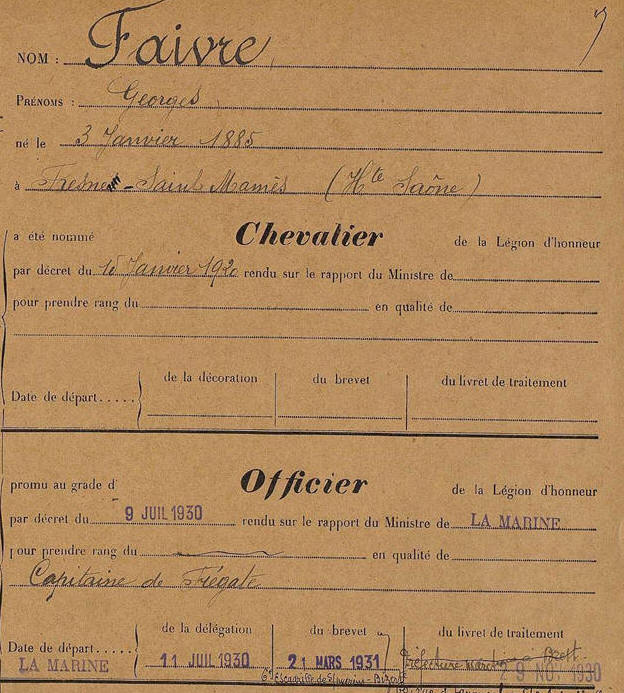 NOM : Faivre
PRÉNOMS : Georges
né le 3 Janvier 1885
à Fresne-Saint Mamès (Hte Saône)
a été nommé Chevalier de la Légion d'honneur
par décret du 16 Janvier 1920 rendu sur le rapport du Ministre de
pour prendre rang du en qualité de
de la décoration du brevet du livret de traitement
Date de départ.....
promu au grade d' Officier de la Légion d'honneur
par décret du 9 JUIL 1930 rendu sur le rapport du Ministre de LA MARINE
pour prendre rang du en qualité de
Capitaine de Frégate
de la délégation du brevet du livret de traitement
Date de départ..... 11 JUIL 1930 21 MARS 1931 Préfecture maritime Brest
LA MARINE 29 NOV 1930